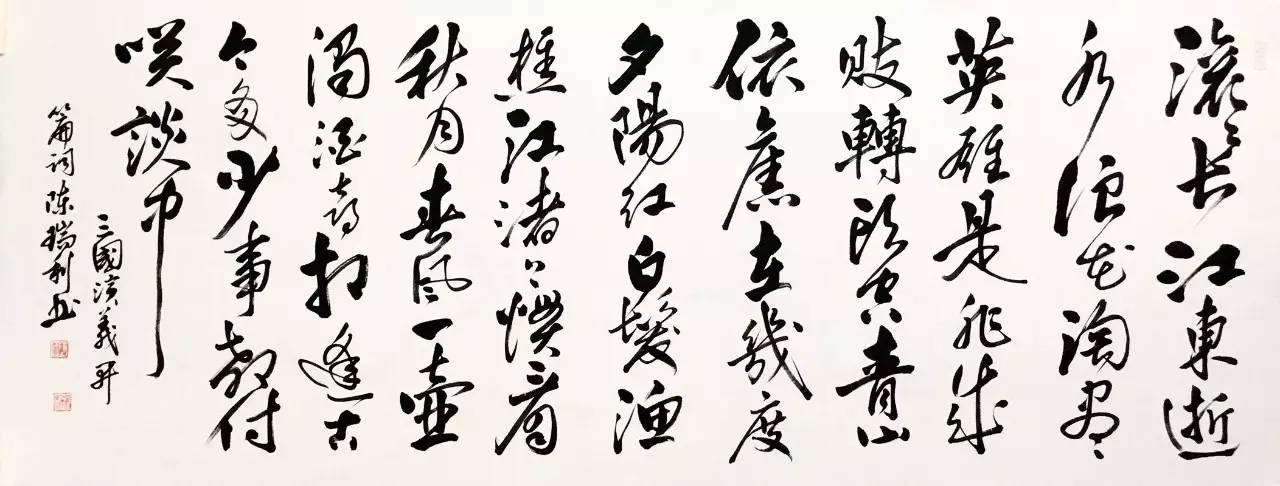 滚滚长江東逝
水浪花淘尽
英雄是非成
败轉头空青山
依舊在幾度
夕陽红白髮渔
樵江渚上惯看
秋月春风一壶
濁酒喜相逢古
今多少事都付
笑談中
三國演義开
篇词陈瑞利书